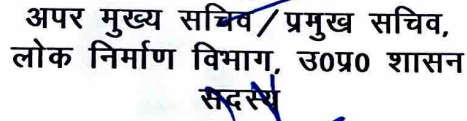 अपर मुख्य सचिव/प्रमुख सचिव,
लोक निर्माण विभाग, उ0प्र0 शासन
सदस्य